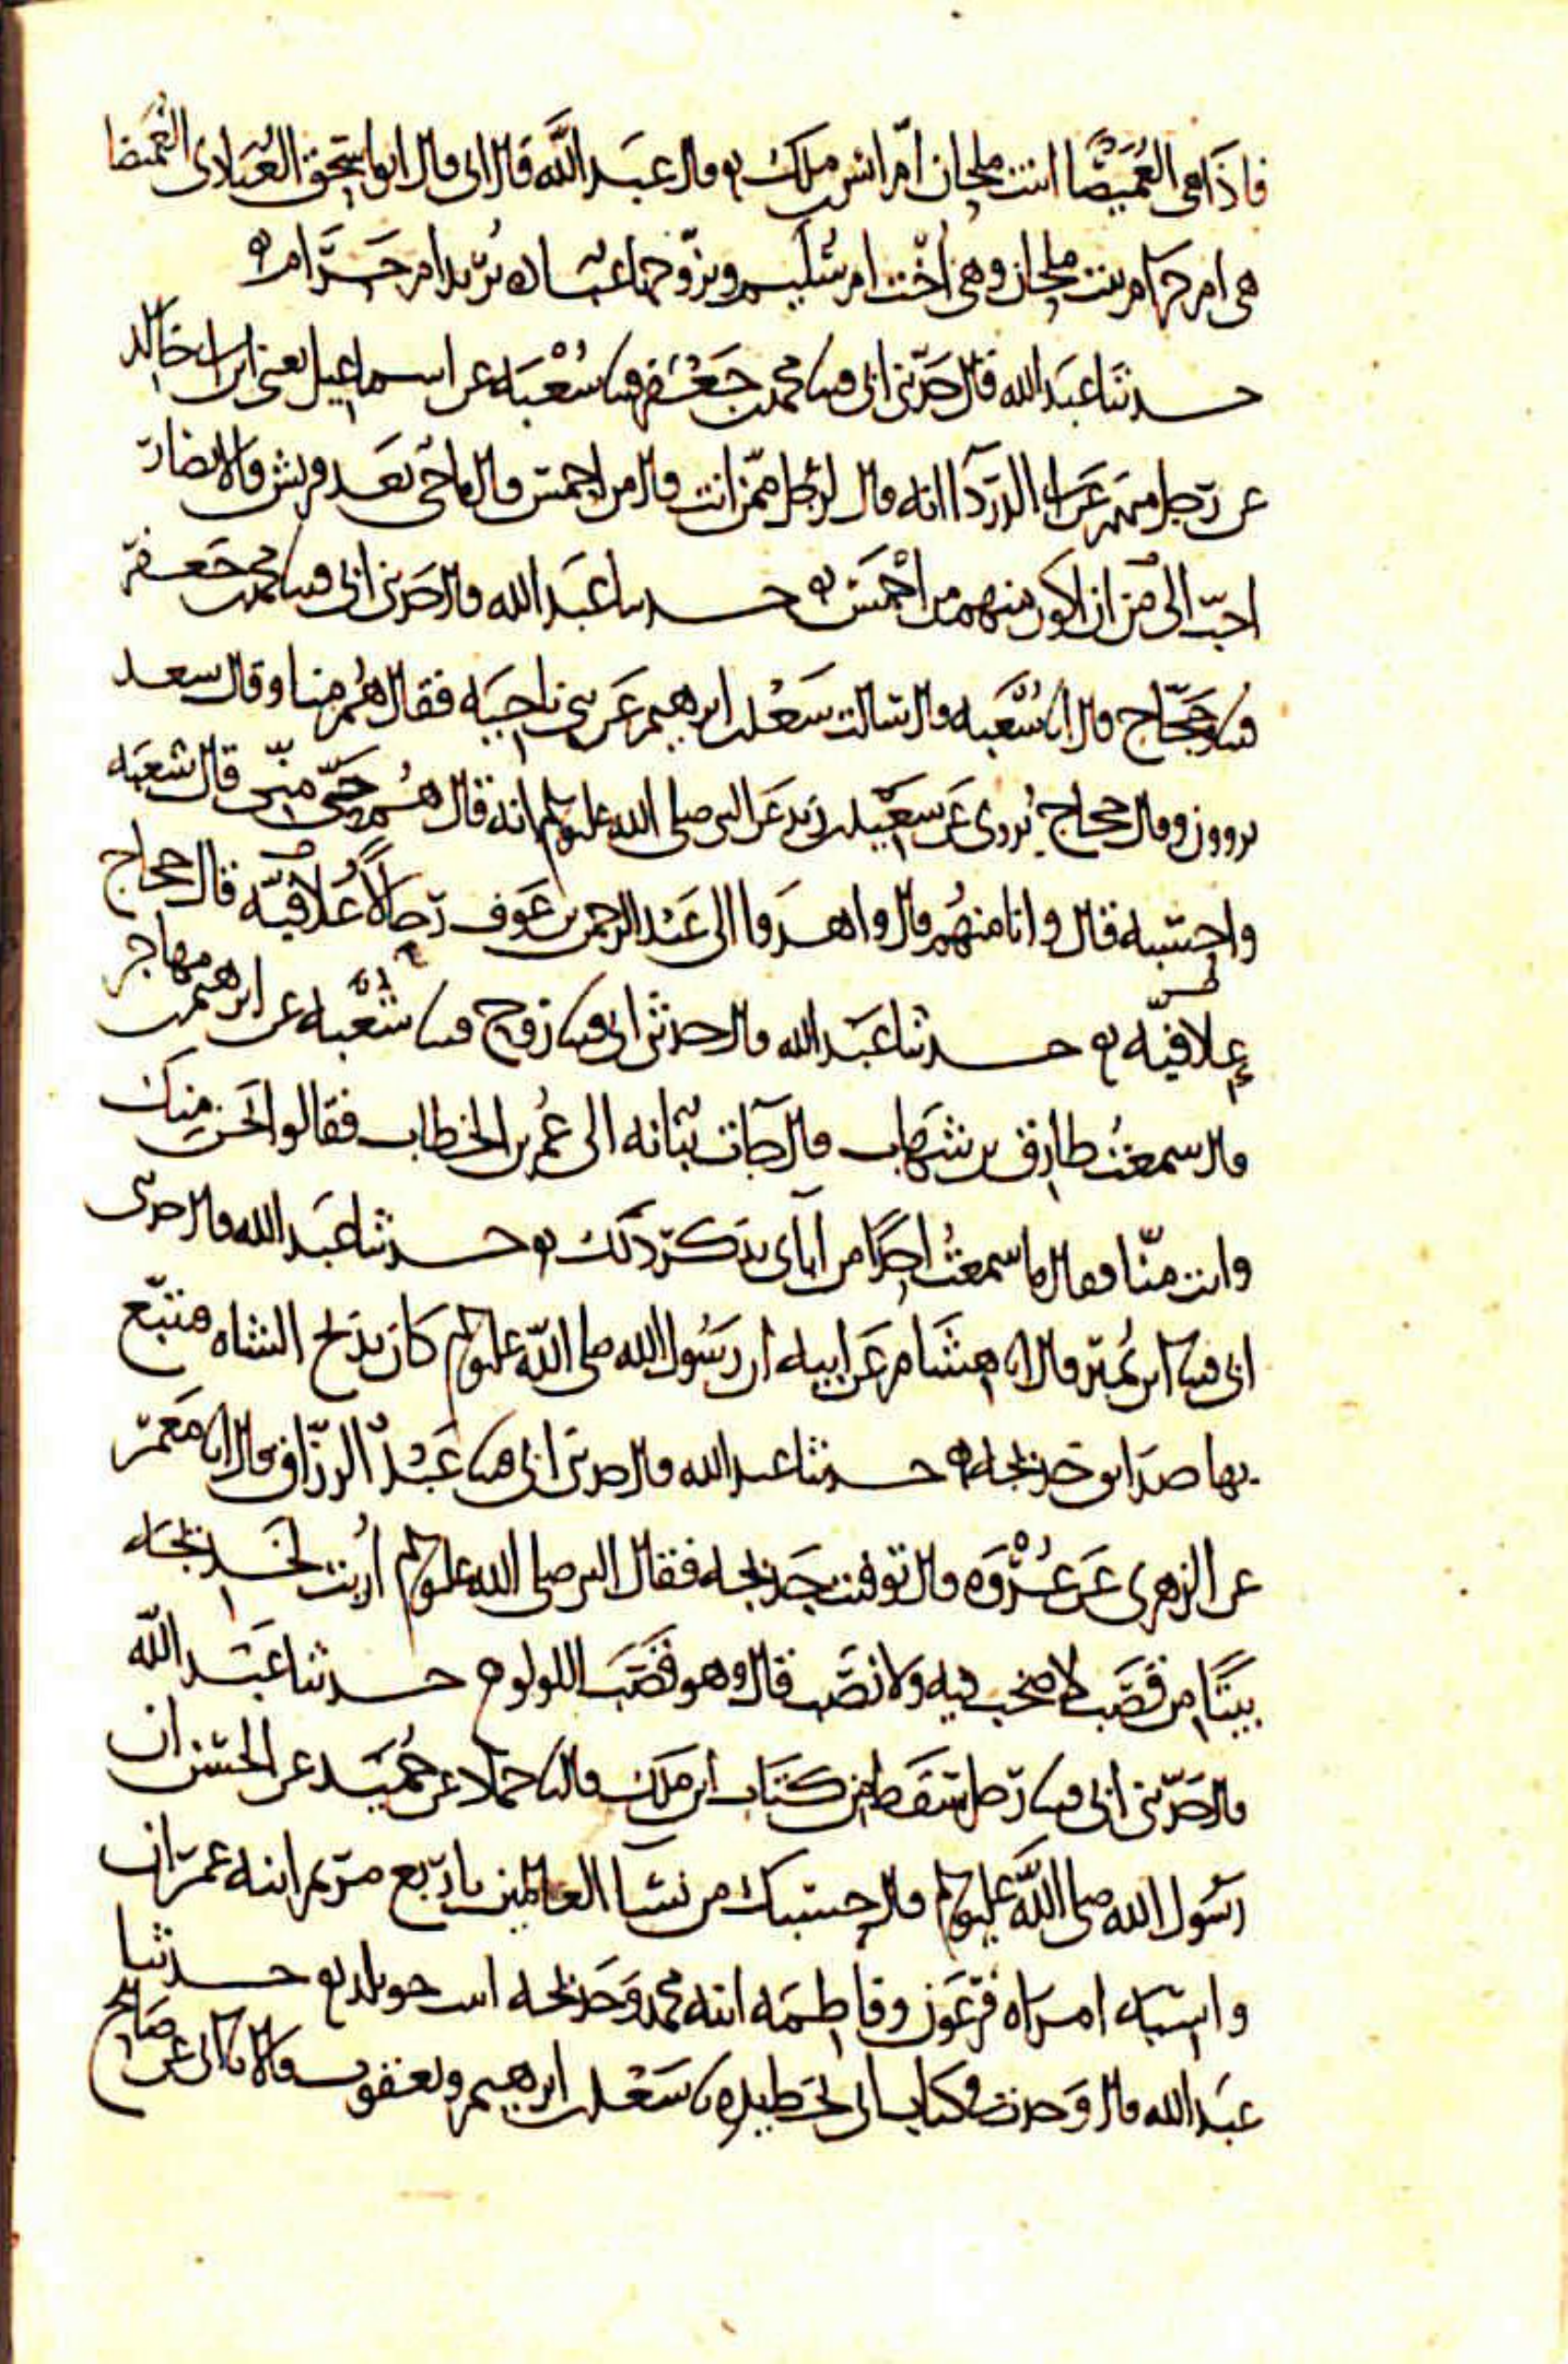 فاذا هى الغميصا ابنت ملحان ام انس بن ملك ۞ قال عبد الله قال ابى قال ابو اسحق العبادى الغميضا
هى ام حرام بنت ملحان وهى اخت ام سليم وتزوجها عباده يريد ام حرام ۞
حدثنا عبد الله قال حدثنى ابى قثنا محمد بن جعفر قثنا شعبه عن اسماعيل يعنى ابن ابى خالد
عن رجل منهم عن ابى الدرداء انه قال لرجل ممن انت قال من احمس قال ما حى بعد قريش والانصار
احب الى من ان اكون منهم من احمس ۞ حدثنا عبد الله قال حدثنى ابى قثنا محمد بن جعفر
قثنا وحجاج قال انا شعبه قال سالت سعد بن ابرهيم عن بنى ناجيه فقال هم منا وقال سعد
يروون وقال حجاج يروى عن سعيد بن زيد عن النبى صلى الله عليه وسلم انه قال هم حى منى قال شعبه
واحسبه قال وانا منهم قال واهدوا الى عبد الرحمن بن عوف رحالا علافيه قال حجاج
علافيه ۞ حدثنا عبد الله قال حدثنى ابى قثنا روح قثنا شعبه عن ابرهيم بن مهاجر
قال سمعت طارق بن شهاب قال جات بنانه الى عمر بن الخطاب فقالوا نحن منك
وانت منا فقال ما سمعت احدا من اباى يذكر ذلك ۞ حدثنا عبد الله قال حدثنى
ابى قثنا ابن نمير قال انا هشام عن ابيه ان رسول الله صلى الله عليه وسلم كان يذبح الشاه فيتتبع
بها صدايق خديجه ۞ حدثنا عبد الله قال حدثنى ابى قثنا عبد الرزاق قال انا معمر
عن الزهرى عن عروه قال توفيت خديجه فقال النبى صلى الله عليه وسلم اريت لخديجه
بيتا من قصب لا صخب فيه ولا نصب قال وهو قصب اللولو ۞ حدثنا عبد الله
قال حدثنى ابى قثنا رجل سقط من كتاب ابن ملك قال نا حماد عن حميد عن الحسن ان
رسول الله صلى الله عليه وسلم قال حسبك من نسا العالمين باربع مريم ابنه عمران
واسيه امراه فرعون وفاطمه ابنه محمد وخديجه ابنت خويلد ۞ حدثنا
عبد الله قال وجدت فى كتاب ابى بخط يده نا سعد بن ابرهيم ويعقوب قالا نا ابى عن صالح